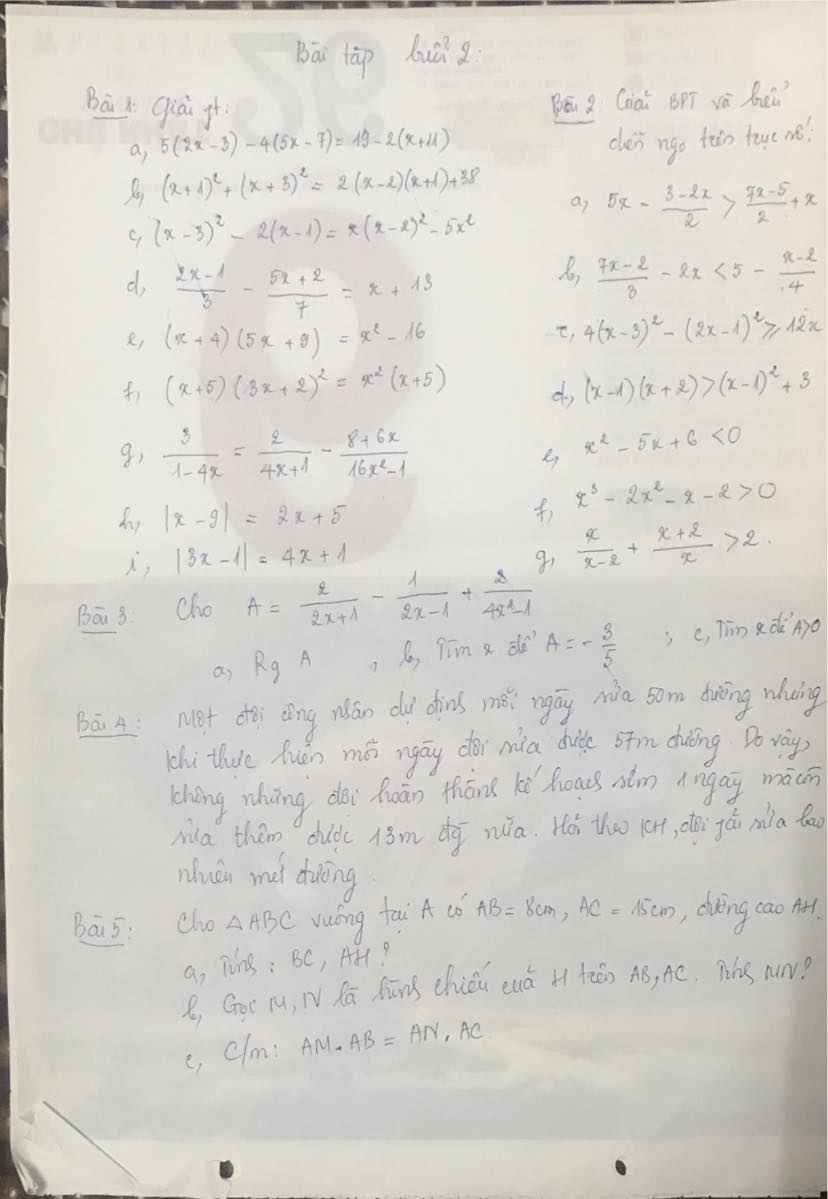 Bài tập buổi 2:
Bài 1: Giải pt:
a, 5(2x-3) - 4(5x-7) = 19 - 2(x+11)
b, (x+1)² + (x+3)² = 2(x-2)(x+1)+38
c, (x-3)² - 2(x-1) = x(x-2)² - 5x²
d, (2x-1)/3 - (5x+2)/7 = x + 13
e, (x+4)(5x+9) = x² - 16
f, (x+5)(3x+2)² = x²(x+5)
g, 3/(1-4x) = 2/(4x+1) - (8+6x)/(16x²-1)
h, |x-9| = 2x+5
i, |3x-1| = 4x+1
Bài 2 Giải BPT và biểu
diễn ngo trên trục số:
a, 5x - (3-2x)/2 > (7x-5)/2 + x
b, (7x-2)/3 - 2x < 5 - (x-2)/4
c, 4(x-3)² - (2x-1)² ≥ 12x
d, (x-1)(x+2) > (x-1)² + 3
e, x² - 5x + 6 < 0
f, x³ - 2x² - x - 2 > 0
g, x/(x-2) + (x+2)/x > 2.
Bài 3: Cho A = 2/(2x+1) - 1/(2x-1) + 2/(4x²-1)
a, Rg A , b, Tìm x để A = -3/5 ; c, Tìm x để A>0
Bài 4: Một đội công nhân dự định mỗi ngày sửa 50m đường nhưng
khi thực hiện mỗi ngày đội sửa được 57m đường. Do vậy,
không những đội hoàn thành kế hoạch sớm 1 ngày mà còn
sửa thêm được 13m đg nữa. Hỏi theo KH, đội fải sửa bao
nhiêu mét đường.
Bài 5: Cho △ABC vuông tại A có AB = 8cm, AC = 15cm, đường cao AH.
a, Tính: BC, AH?
b, Gọi M, N là hình chiếu của H trên AB, AC. Tính MN?
c, C/m: AM.AB = AN.AC